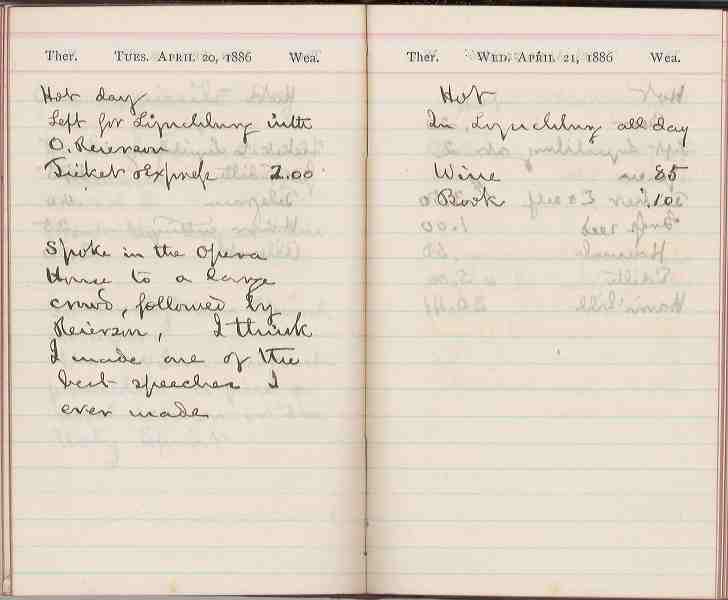 Ther. TUES. APRIL 20, 1886 Wea.
Hot day
Left for Lynchburg with
O. Reierson
Ticket & Express 2.00
Spoke in the Opera
House to a large
crowd, followed by
Reierson, I think
I made one of the
best speeches I
ever made
Ther. WED. APRIL 21, 1886 Wea.
Hot
In Lynchburg all day
Wine 85
Book .10